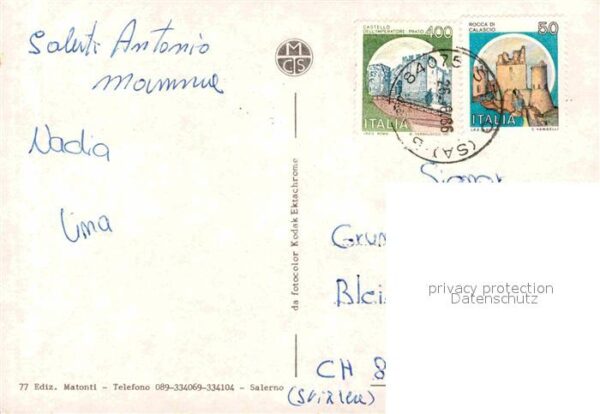 Saluti Antonio
Mamma
Nadia
Lina
M
C S
CASTELLO
DELL'IMPERATORE - PRATO
400
ITALIA
ROCCA DI
CALASCIO
50
ITALIA
84075
(SA)
Signor
CH 8
(Svizzera)
da fotocolor Kodak Ektachrome
77 Ediz. Matonti - Telefono 089-334069-334104 - Salerno
privacy protection
Datenschutz